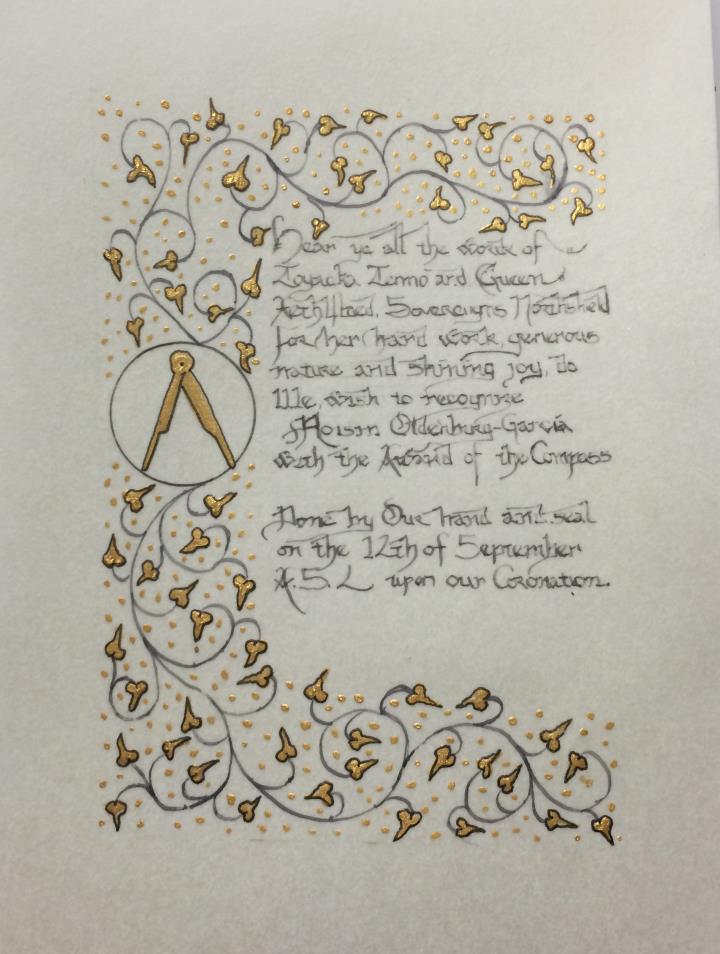 Hear ye all the work of
Toysuka Tenno and Queen
Sovereigns Northshield
for her hard work, generous
nature and shining joy, do
We, wish to recognize
Oldenburg-Garcia
with the Award of the Compass
Done by Our hand and seal
on the 12th of September
A.S.L upon our Coronation.